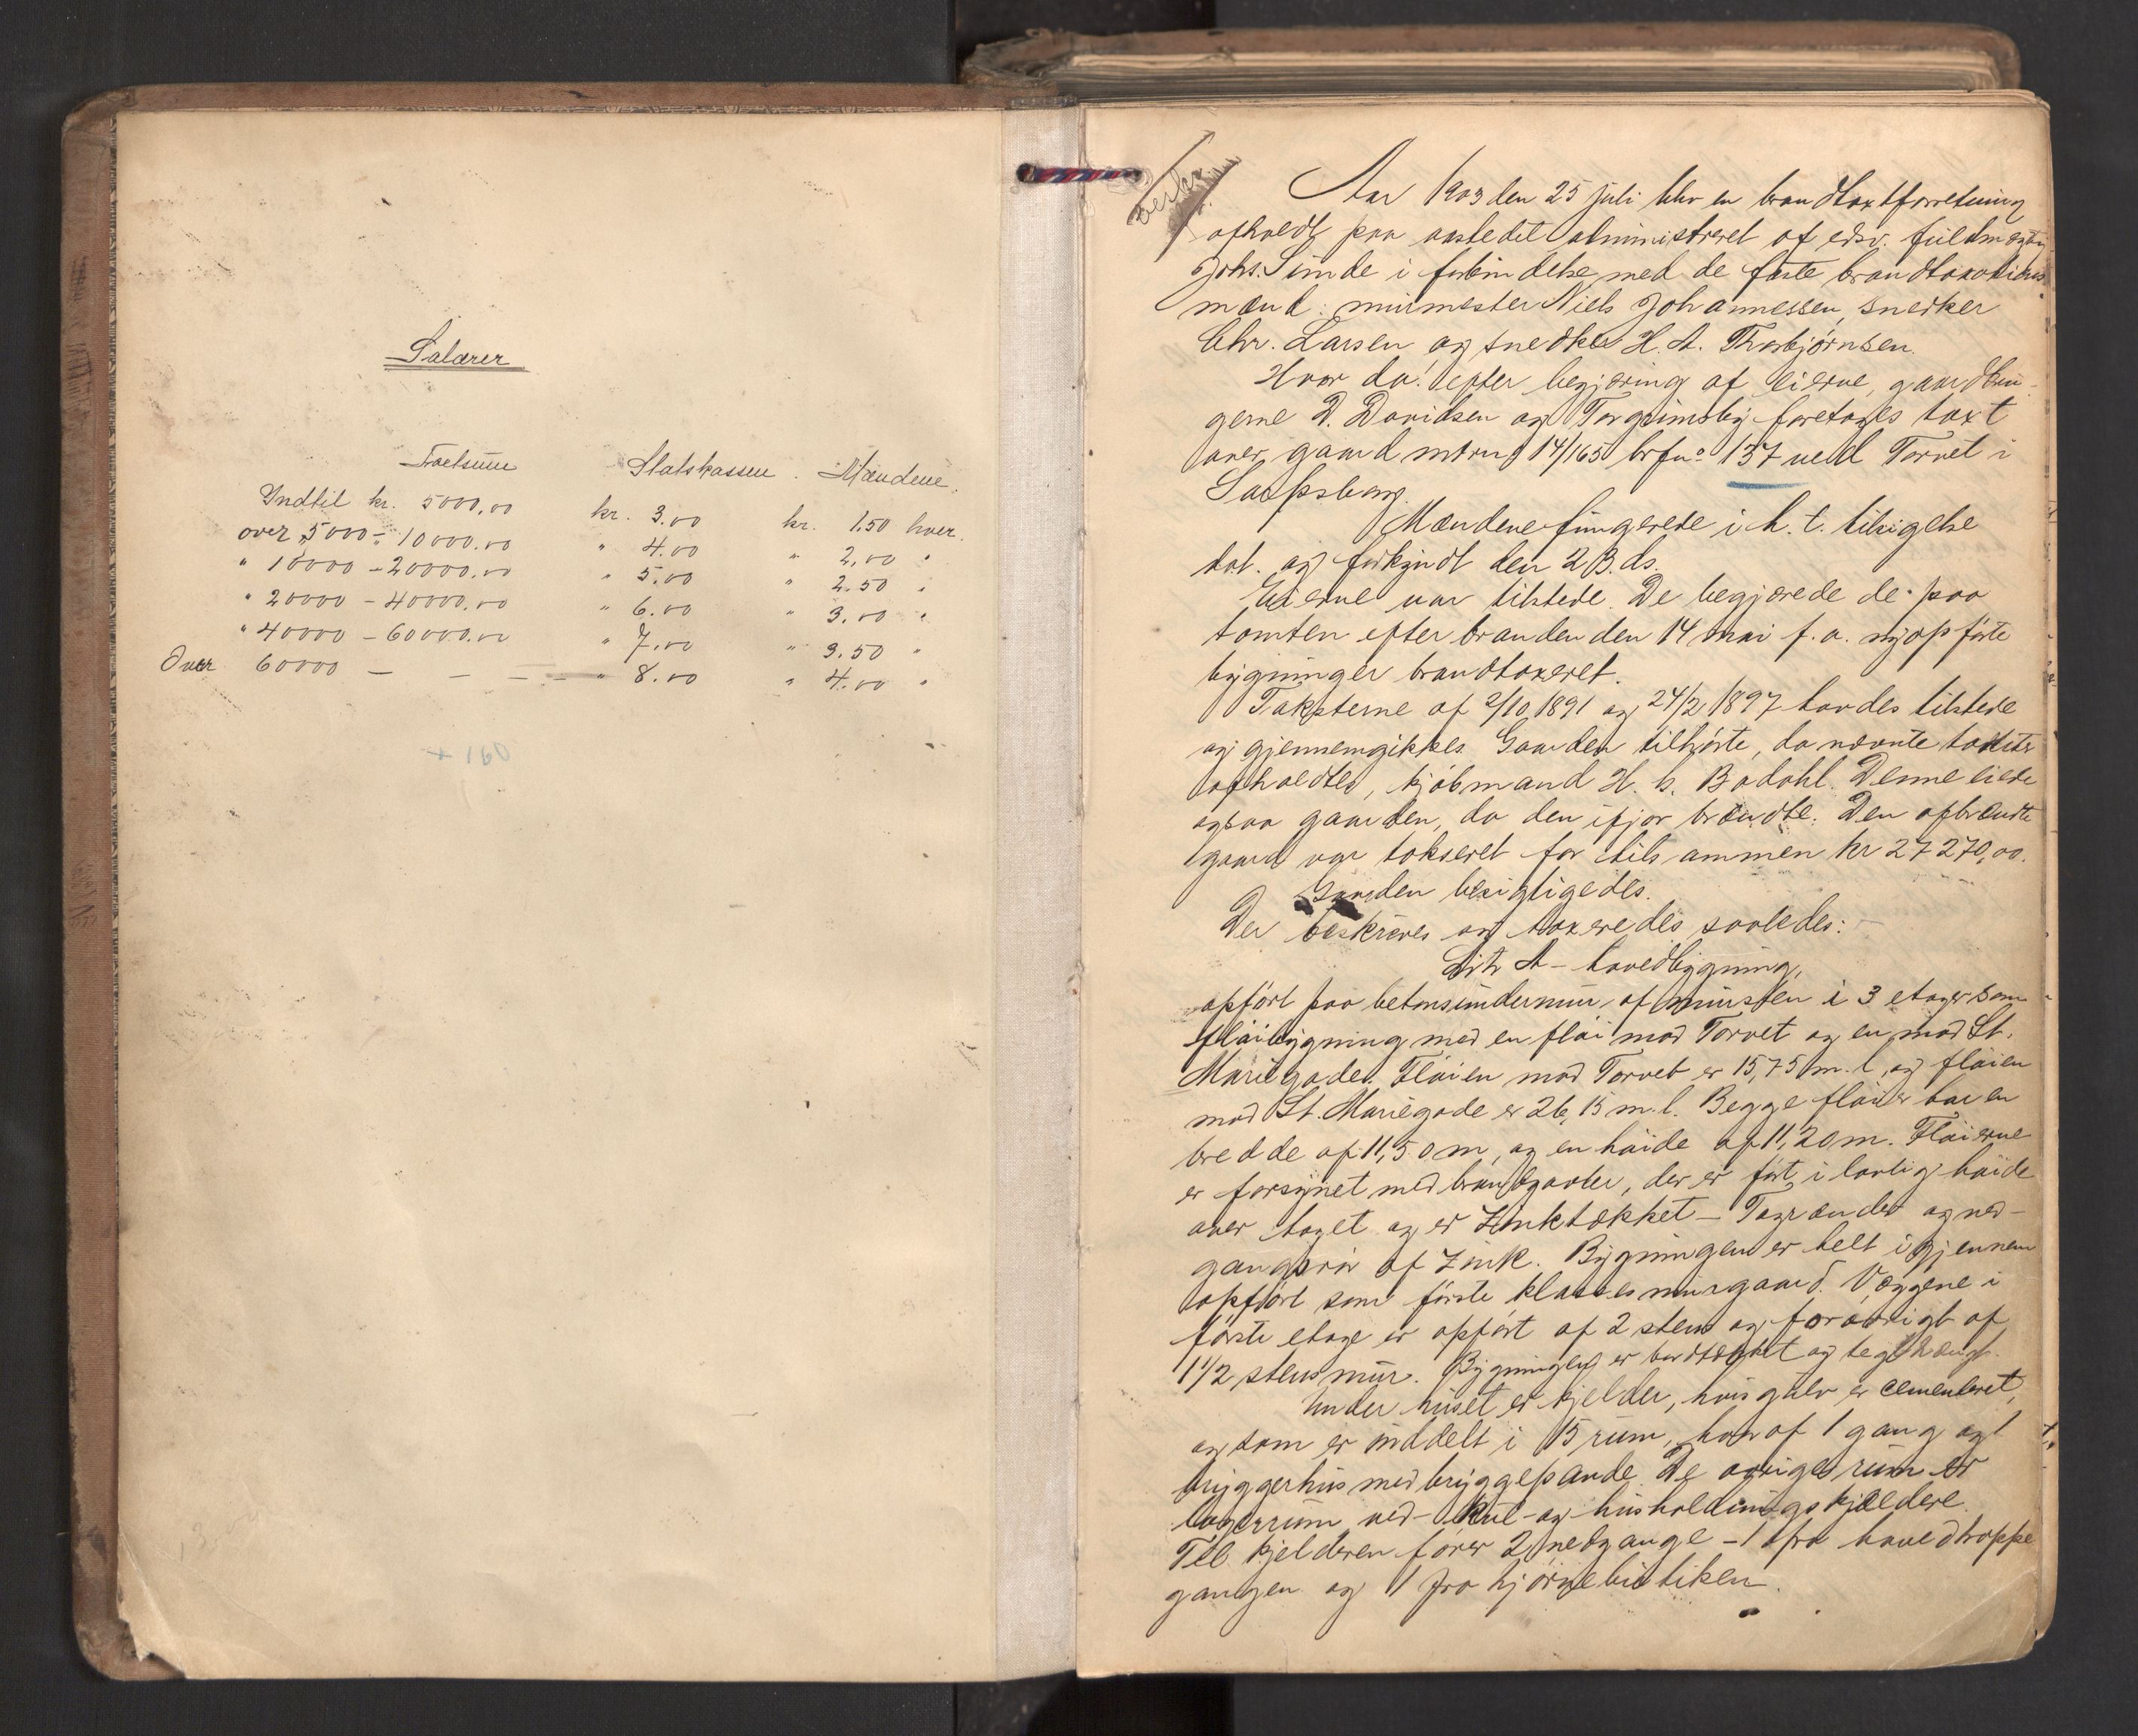 Salærer
Taxtsum Statskassen. Mændene.
Indtil kr. 5000,00 kr. 3.00 kr. 1.50 hver.
over 5000 - 10000.00 " 4.00 " 2,00 "
" 10000 - 20000.00 " 5.00 " 2.50 "
" 20000 - 40000.00 " 6.00 " 3.00 "
" 40000 - 60000.00 " 7.00 " 3.50 "
Over 60000 - - - - " 8.00 " 4.00 "
Aar 1903 den 25 juli blev en brandtaxtforretning
afholdt paa aastedet administreret af edsv. fuldmægtig
Johs. Sunde i forbindelse med de faste brandtaxations
mænd: murmester Niels Johannessen, snedker
Chr. Larsen og snedker H. A. Thorbjørnsen.
Hvor da: efter begjæring af eierne, gaardbru-
gerne D. Davidsen og Torgrimsby foretoges taxt
over gaard mtrno 14/165 brfno 137 ved Torvet i
Sarpsborg.
Mændene fungerede i h. t. tilsigelse
dat. og forkyndt den 23. ds.
Eierne var tilstede. De begjærede de paa
tomten efter branden den 14 mai f. a. nyopførte
bygninger brandtaxeret.
Taksterne af 2/10 1891 og 24/2 1897 havdes tilstede
og gjennemgikkes. Gaarden tilhørte, da nævnte takster
afholdtes, kjøbmand H. h. Bødahl. Denne eiede
ogsaa gaarden, da den ifjor brændte. Den afbrændte
gaard var takseret for tilsammen kr 27270,00.
Gaarden besigtigedes.
Der beskrives og taxeredes saaledes: -
Litr A - hovedbygning,
opført paa betonsundermur, af mursten i 3 etager som
fløibygning med en fløi mod Torvet og en mod St.
Mariegade. Fløien mod Torvet er 15,75 m. l, og fløien
mod St. Mariegade er 26,15 m. l. Begge fløier har en
bredde af 11,50 m, og en høide af 11,20 m. Fløierne
er forsynet med brandgavler, der er ført i lovlig høide
over taget og er zinktækket - Tagrænder og ned-
gangsrør af zink. Bygningen er helt igjennem
opført som første klasses murgaard. Væggene i
første etage er opført af 2 stens og forøvrigt af
1 1/2 stens mur. Bygningen er bordtækket og teglhængt.
Under huset er kjelder, hvis gulv er cementeret,
og som er inddelt i 15 rum, hvoraf 1 gang og 1
bryggerhus med bryggepande. De øvrige rum er
lagerrum ved- kul- og husholdningskjeldere.
Til kjelderen fører 2 nedgange - 1 fra hovedtrappe
gangen og 1 fra hjørnebutiken.